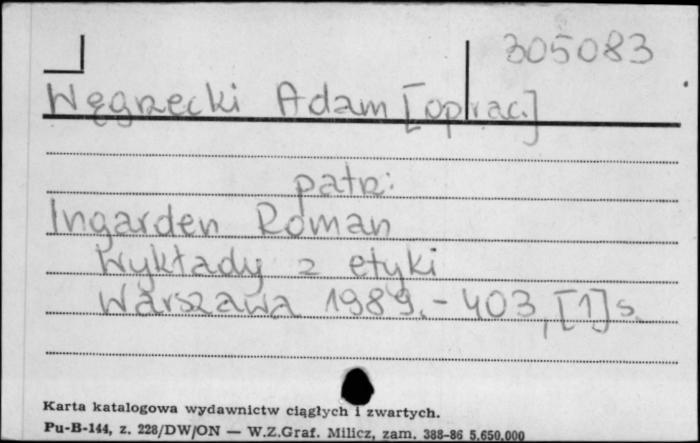 305083
Węgrzecki Adam [oprac.]
patrz:
Ingarden Roman
Wykłady z etyki
Warszawa 1989. - 403, [1] s.
Karta katalogowa wydawnictw ciągłych i zwartych.
Pu-B-144, z. 228/DW/ON — W.Z.Graf. Milicz, zam. 388-86 5.650.000